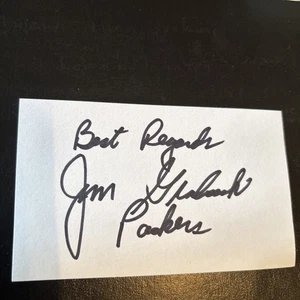 Best Regards
Jim Grabowski
Packers